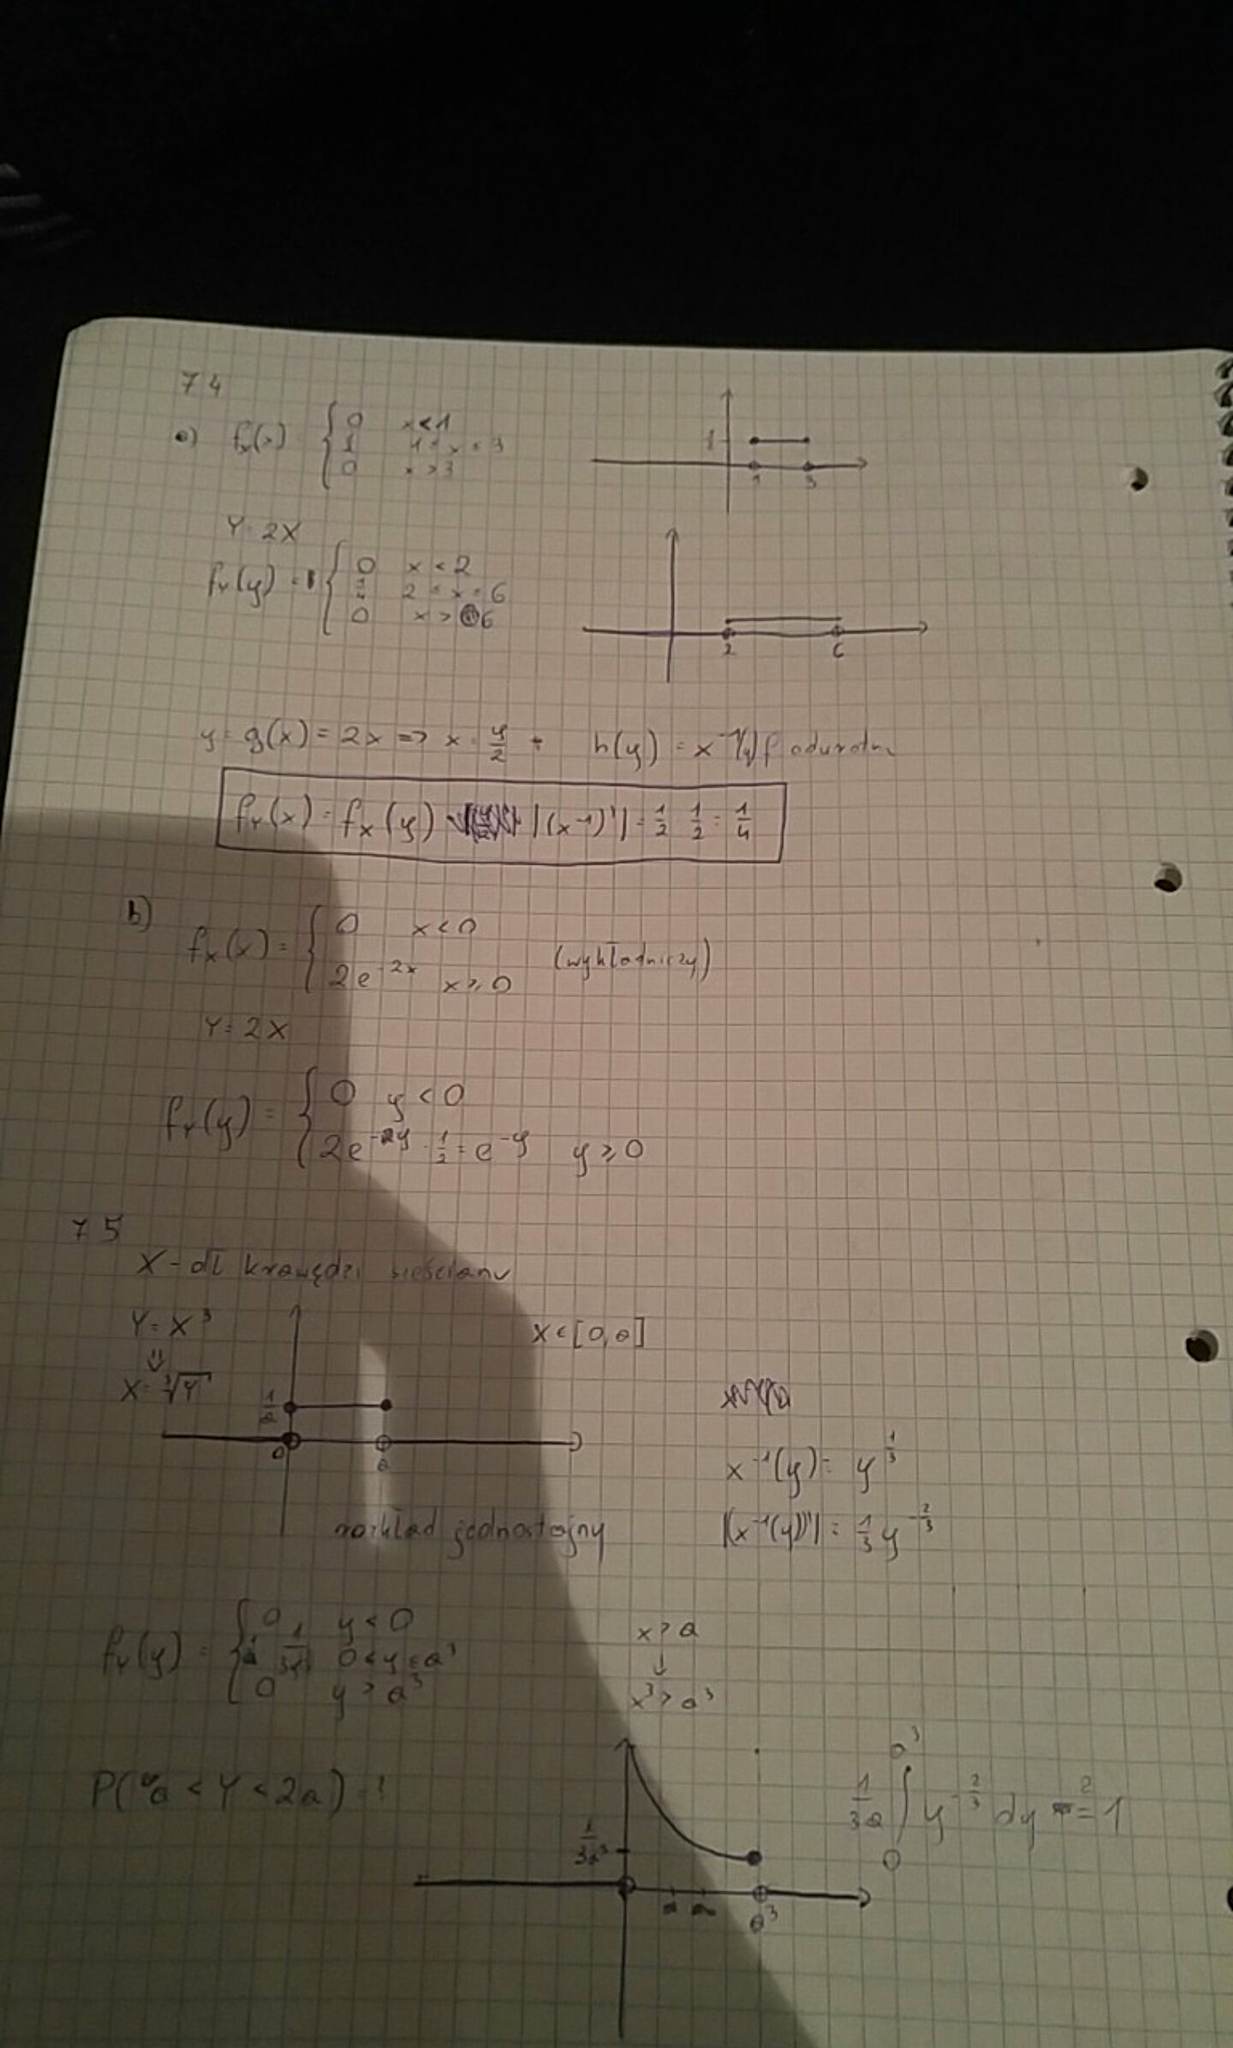 7 4
a) fx(x) { 0 x<1
1 ≤ x ≤ 3
0 x>3
1
1 3
Y=2X
fY(y) = { 0 x<2
1/4 2 ≤ x ≤ 6
0 x> 6
2 6
y=g(x)=2x => x=y/2
h(y) = x^-1(y)
fY(x) = fX(y) |(x^-1)'| = 1/2 · 1/2 = 1/4
b) fx(x) = { 0 x<0
2e^-2x x≥0
(wykładniczy)
Y=2X
fY(y) = { 0 y<0
2e^-2y · 1/2 = e^-y y≥0
7 5
X - dł krawędzi sześcianu
Y=X^3
X∈[0,a]
⇓
X=∛Y
1/a
0 a
x^-1(y) = y^1/3
rozkład jednostajny
|(x^-1(y))'| = 1/3 y^-2/3
fY(y) = { 0 y<0
0<y≤a^3
0 y>a^3
x>a
↓
x^3>a^3
P(a<Y<2a)=?
1/3a^3
a 2a a^3
1/3a ∫ 0 a^3 y^-2/3 dy ?= 1